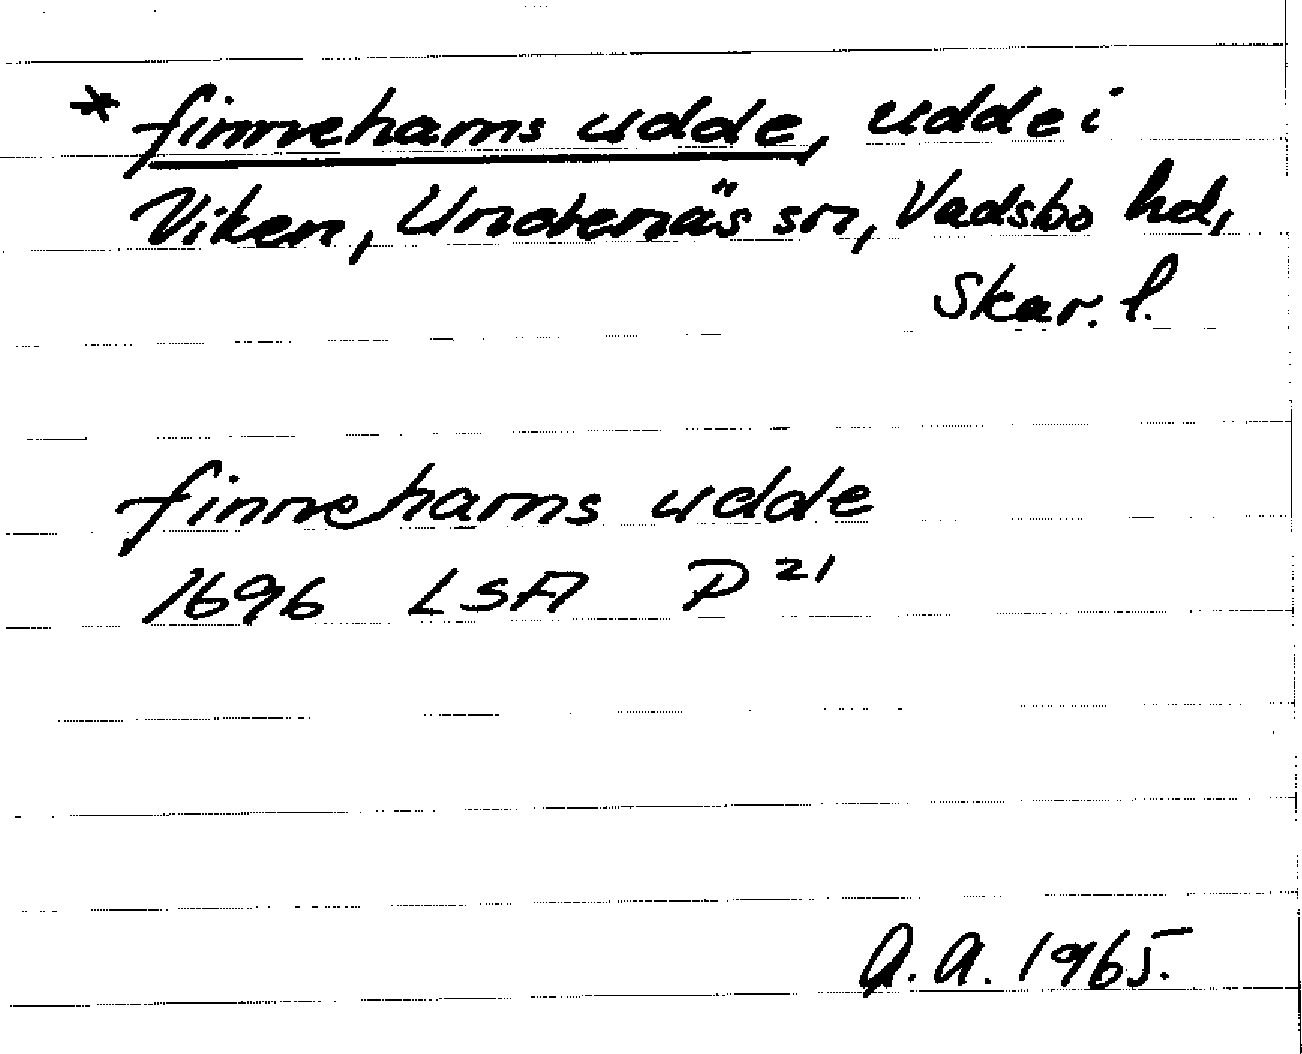 * finnehams udde, udde i
Viken, Undenäs sn, Vadsbo hd,
Skar. l.
finnehams udde
1696 LSA P 21
A. A. 1965.